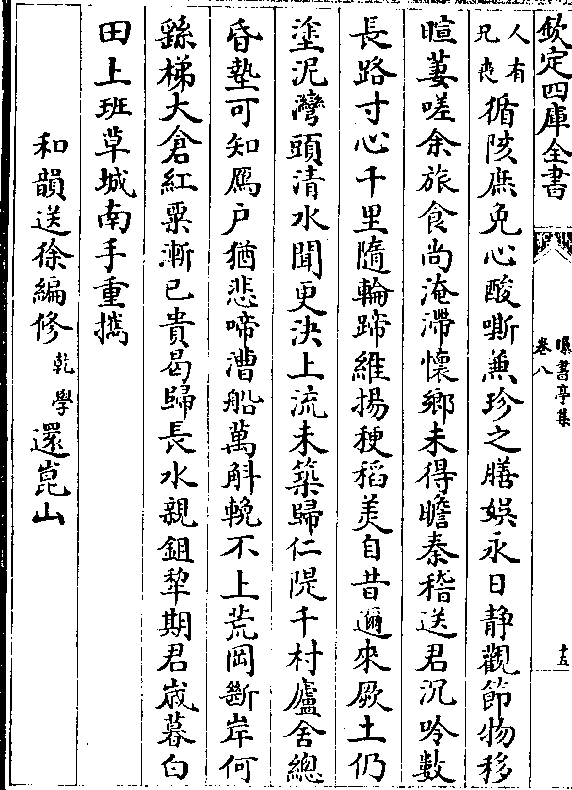 欽定四庫全書
曝書亭集
卷八
十五
人有
兄喪循陔庶免心酸嘶兼珍之膳娛永日静觀節物移
暄萋嗟余旅食尚淹滯懷鄉未得瞻秦稽送君沉吟數
長路寸心千里隨輪蹄維揚稉稻美自昔邇來厥土仍
塗泥灣頭清水聞更決上流未築歸仁隄千村廬舍總
昏墊可知鴈户猶悲啼漕船萬斛輓不上荒岡斷岸何
繇梯大倉紅粟漸已貴曷歸長水親鉏犂期君歲暮白
田上班草城南手重攜
和韻送徐編修乾學還崑山